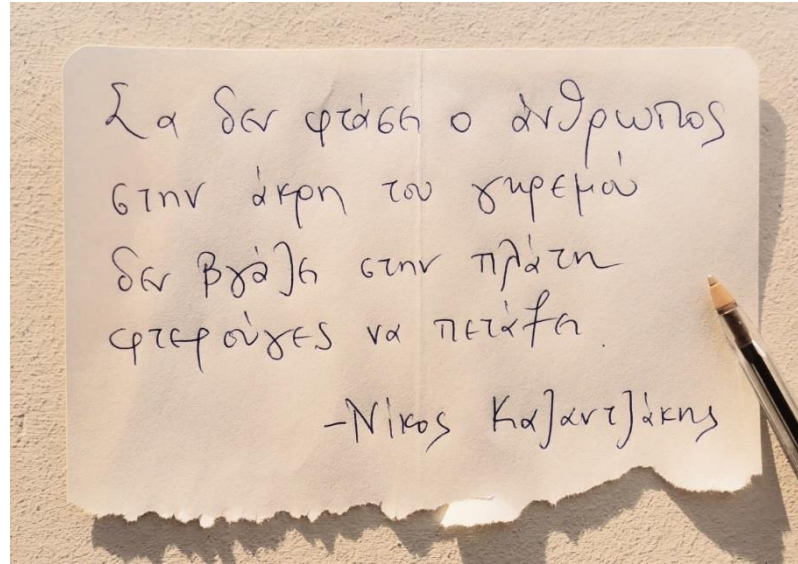 Σα δεν φτάσει ο άνθρωπος
στην άκρη του γκρεμού
δεν βγάζει στην πλάτη
φτερούγες να πετάξει.
-Νίκος Καζαντζάκης